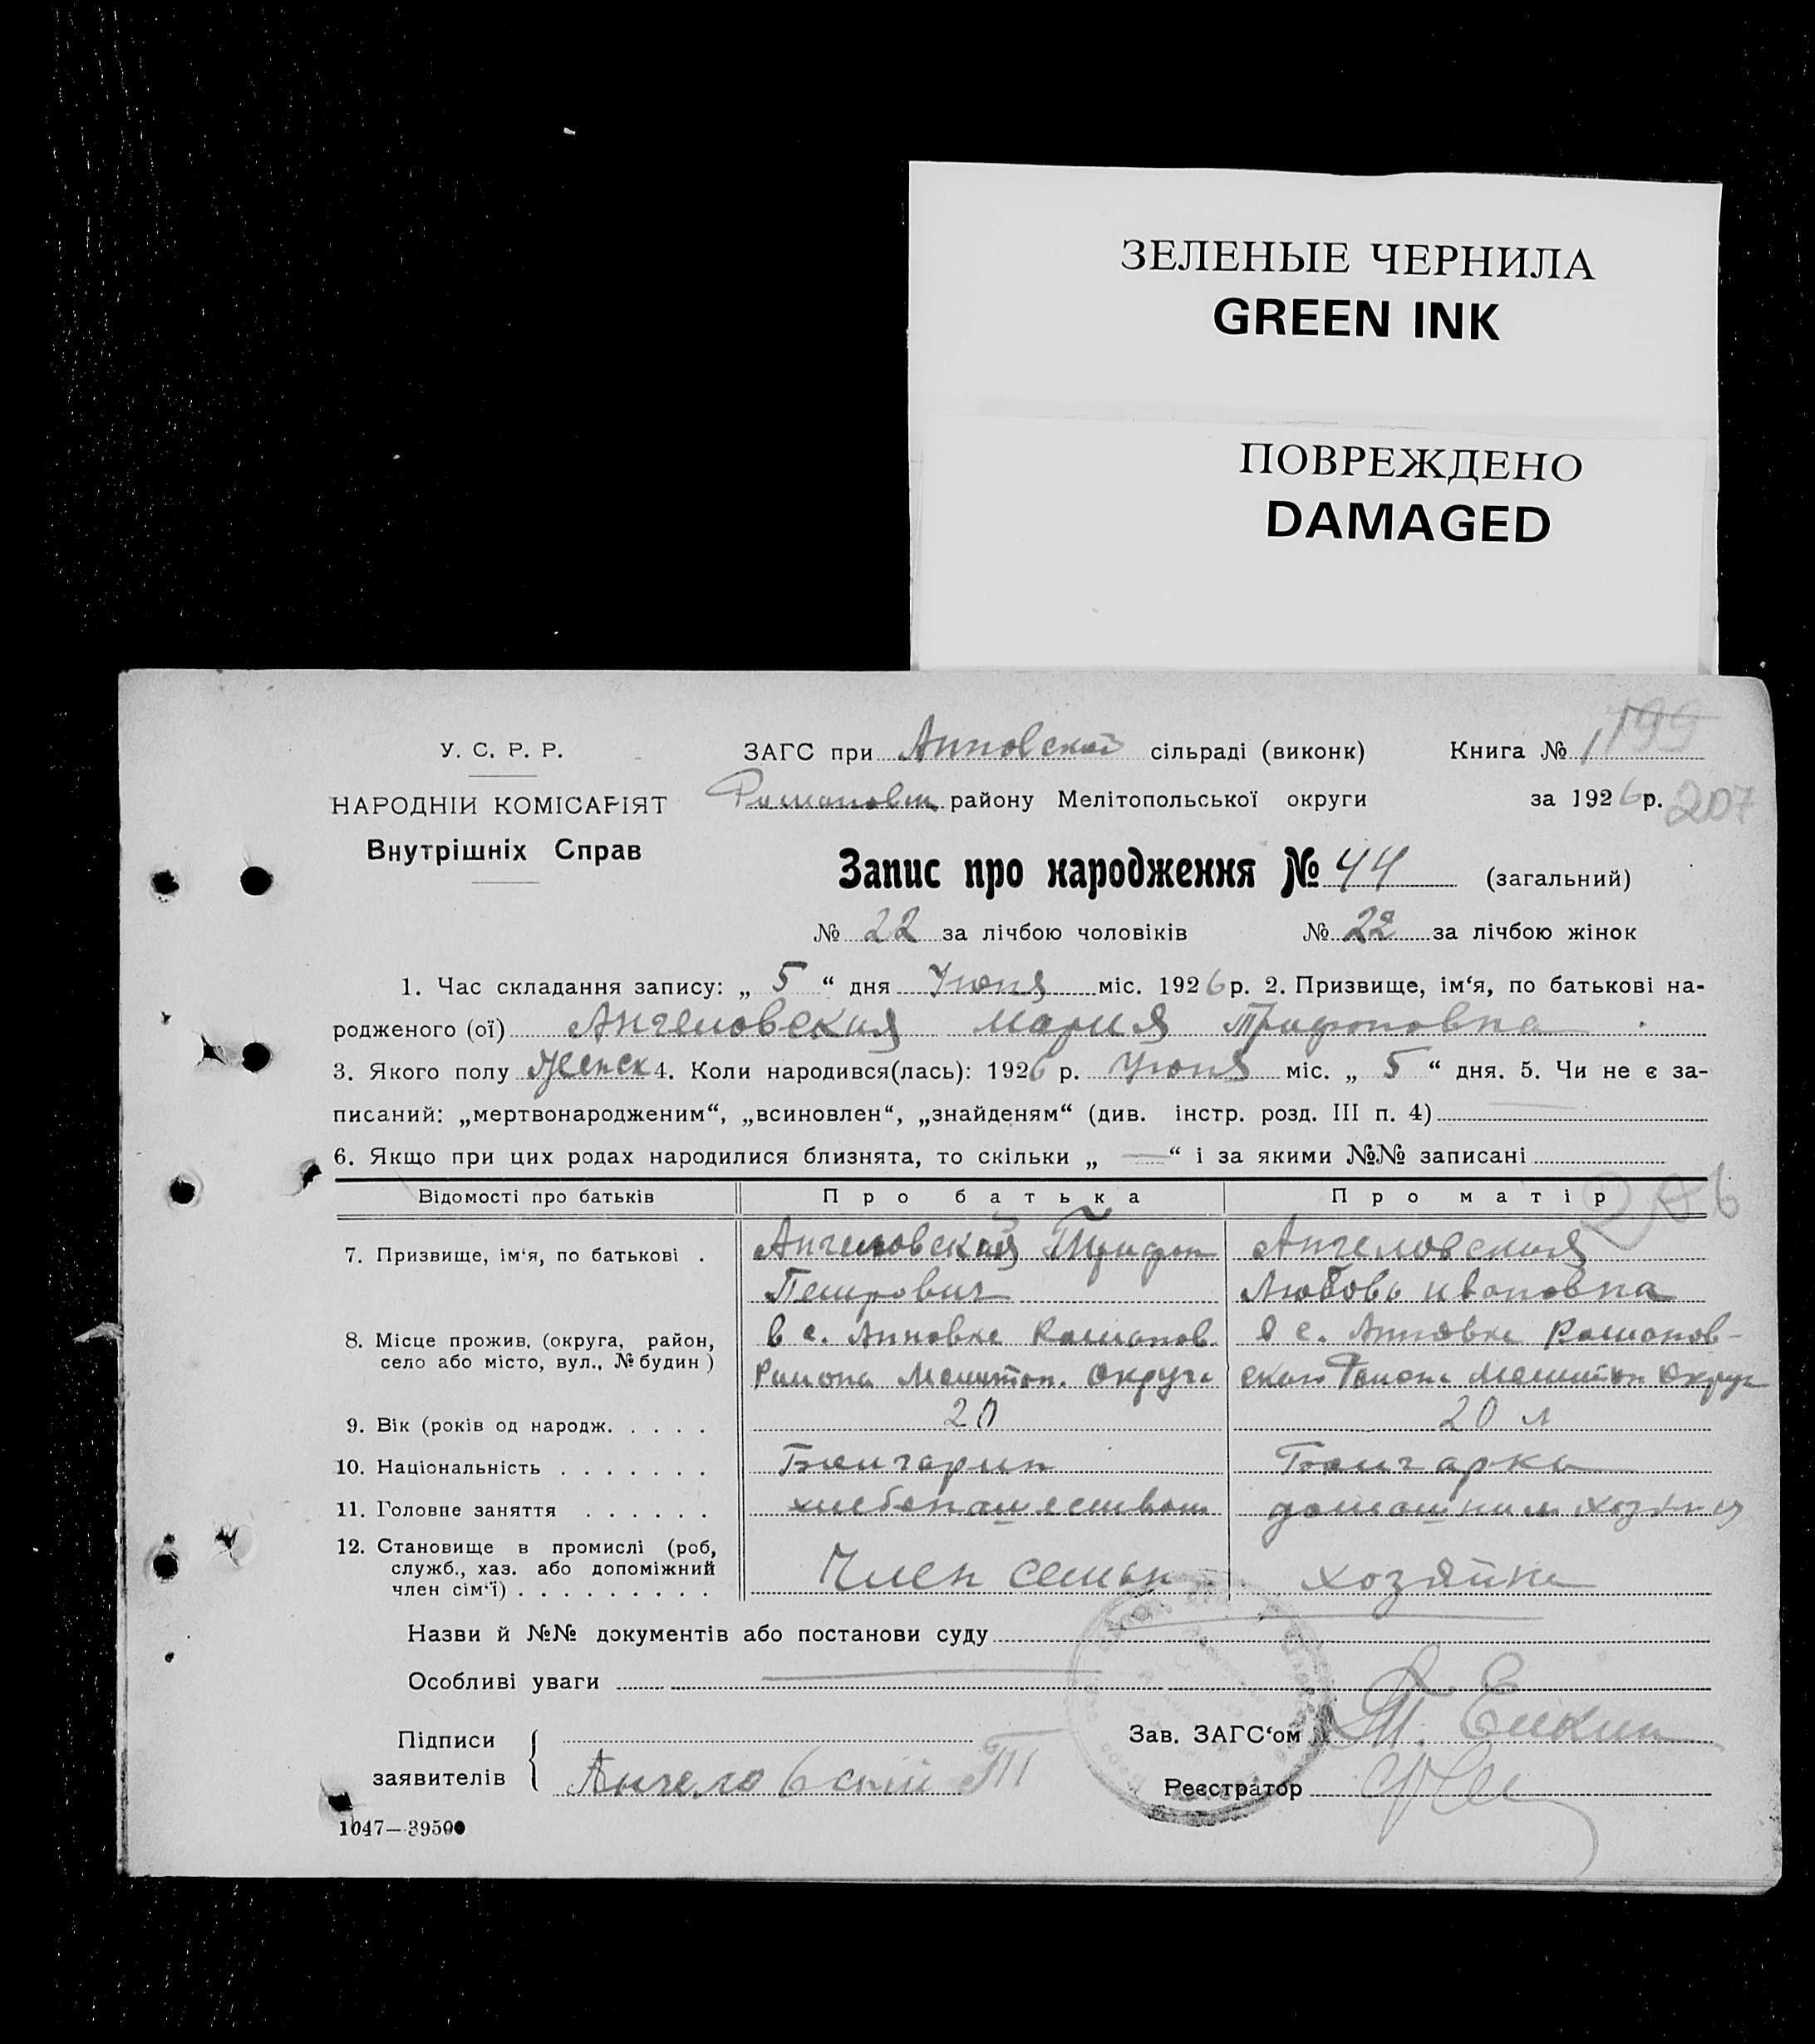 ЗЕЛЕНЫЕ ЧЕРНИЛА
GREEN INK
ПОВРЕЖДЕНО
DAMAGED
У. С. Р. Р.
НАРОДНІИ КОМІСАРІЯТ
Внутрішніх Справ
ЗАГС при Анновской сільраді (виконк) Книга № 1 199
Романовск району Мелітопольської округи за 1926 р. 207
Запис про народження № 44 (загальний)
№ 22 за лічбою чоловіків № 22 за лічбою жінок
1. Час складання запису: „ 5 “ дня Июня міс. 1926 р. 2. Призвище, ім‘я, по батькові на-
родженого (ої) Ангеловская Мария Трифоновна
3. Якого полу Женск 4. Коли народився(лась): 1926 р. Июня міс. „ 5 “ дня. 5. Чи не є за-
писаний: „мертвонародженим“, „всиновлен“, „знайденям“ (див. інстр. розд. III п. 4)
6. Якщо при цих родах народилися близнята, то скільки „ — “ і за якими №№ записані
206
Відомості про батьків Про батька Про матір
7. Призвище, ім‘я, по батькові . Ангеловский Трифон Ангеловская
Петрович Любовь Ивановна
8. Місце прожив. (округа, район, в с. Анновке Романов. в с. Анновке Романов-
село або місто, вул., № будин ) Района Мелитоп. Округа ского Района Мелитоп Округ
9. Вік (років од народж. . . . . 20 20 л
10. Національність . . . . . . . Болгарин Болгарка
11. Головне заняття . . . . . . хлебопашеством домашним хозяия
12. Становище в промислі (роб,
служб., хаз. або допоміжний Член семьи хозяйка
член сім‘ї) . . . . . . . . .
Назви й №№ документів або постанови суду
Особливі уваги
Підписи Зав. ЗАГС‘ом
заявителів Ангеловский Т Реєстратор
1047—39500